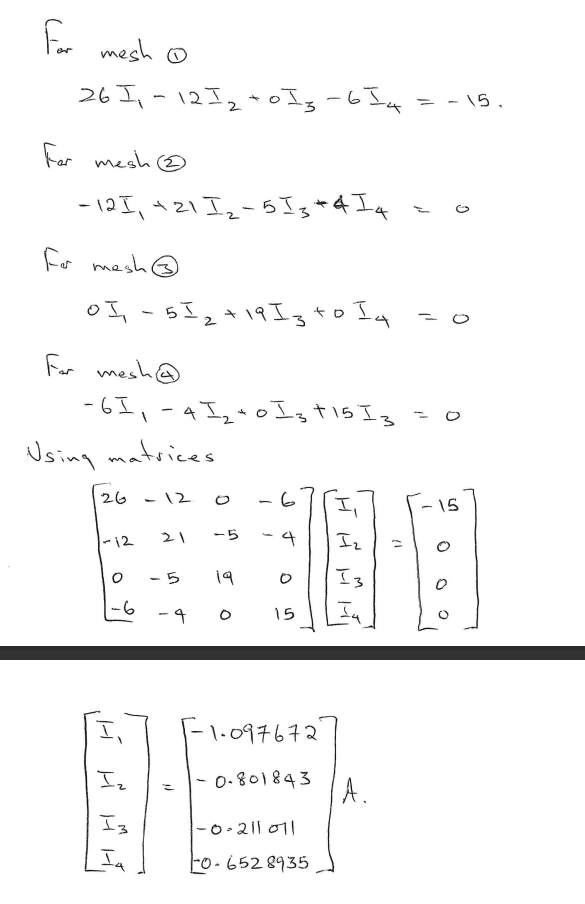 For mesh ①
26 I₁ - 12 I₂ + 0 I₃ - 6 I₄ = -15.
For mesh ②
-12 I₁ + 21 I₂ - 5 I₃ - 4 I₄ = 0
For mesh ③
0 I₁ - 5 I₂ + 19 I₃ + 0 I₄ = 0
For mesh ④
-6 I₁ - 4 I₂ + 0 I₃ + 15 I₃ = 0
Using matrices
26 -12 0 -6 I₁ -15
-12 21 -5 -4 I₂ = 0
0 -5 19 0 I₃ 0
-6 -4 0 15 I₄ 0
I₁ -1.097672
I₂ = -0.801843 A.
I₃ -0.211011
I₄ -0.6528935